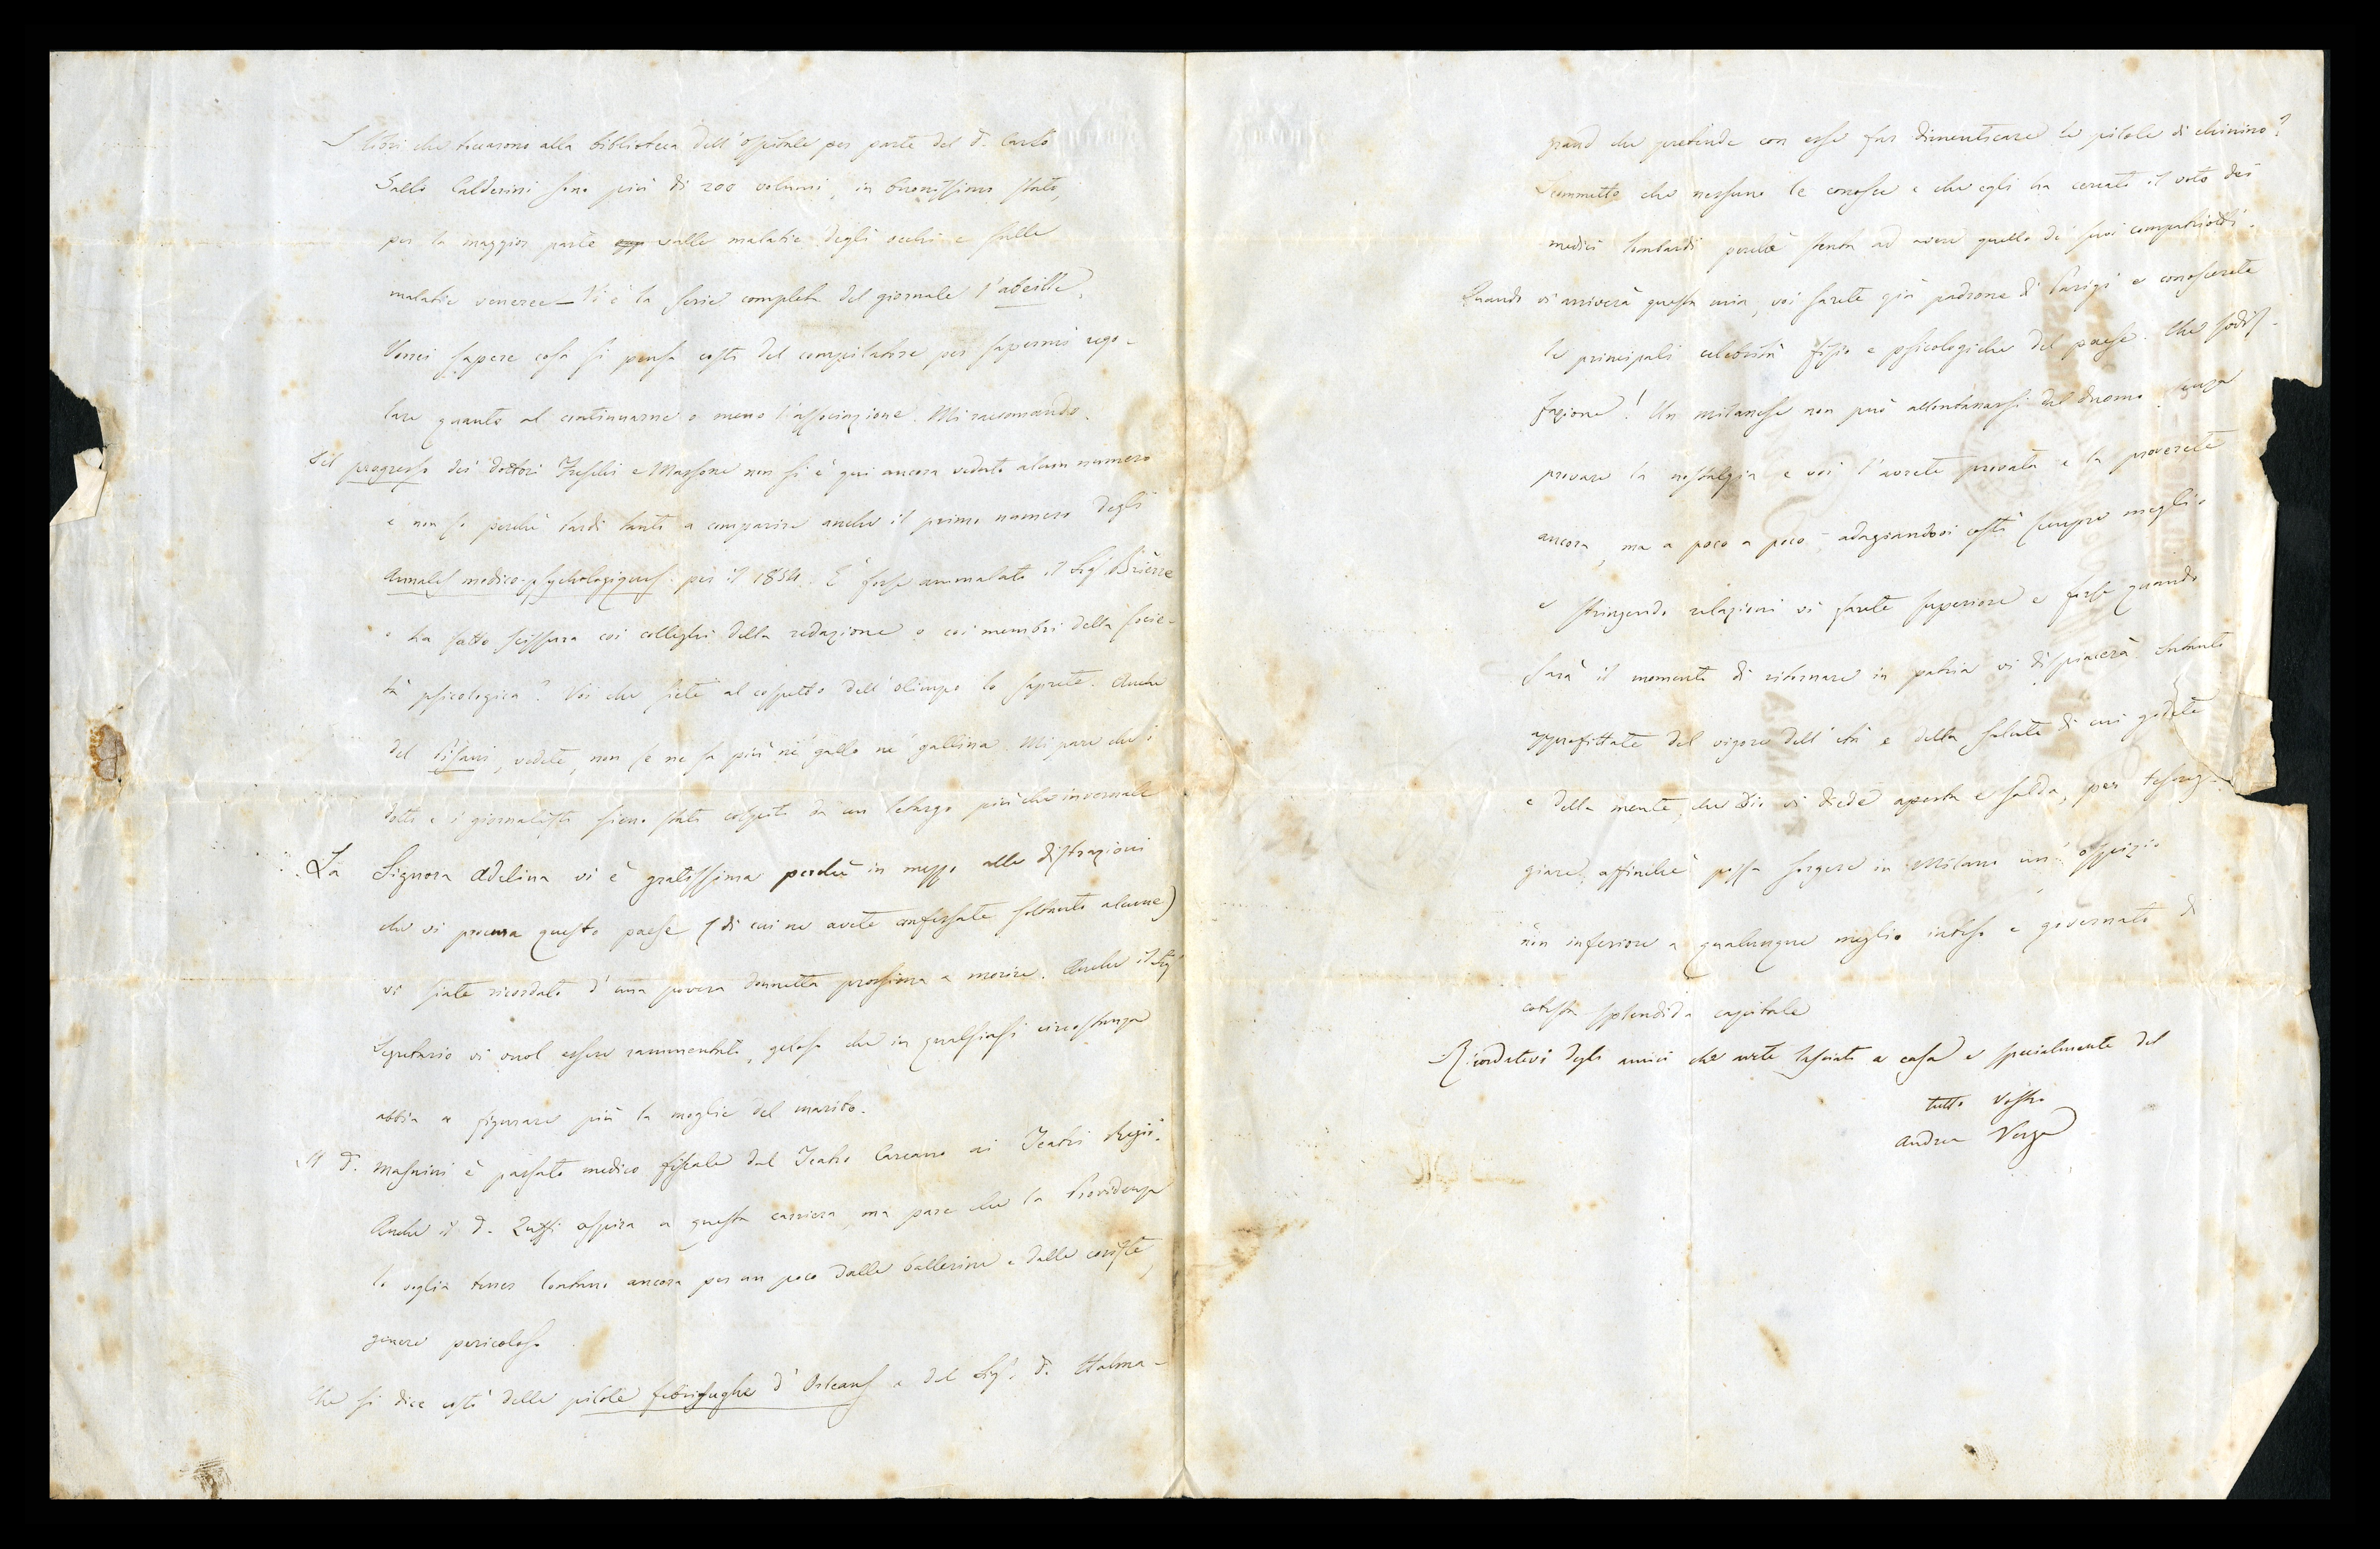 I libri che toccarono alla biblioteca dell'ospitale per parte del d. Carlo
Dallo Calderini sono più di 200 volumi, in buonissimo stato,
per la maggior parte sulle malatie degli occhi e sulle
malatie veneree – Vi è la serie completa del giornale l'abeille.
Vorrei sapere cosa si pensa costì del compilatore per sapermi rego-
lare quanto al continuarne o meno l'associazione. Mi raccomando.
Del progresso dei dottori Freschi e Massone non si è qui ancora veduto alcun numero
e non so perchè tardi tanto a comparire anche il primo numero degli
Annales medico-psychologiques per il 1854. È forse ammalato il Sig. Brierre
o ha fatto scissura coi colleghi della redazione o coi membri della socie-
tà psicologica? Voi che siete al cospetto dell'olimpo lo saprete. Anche
del Pisani, vedete, non se ne sa più nè gallo nè gallina. Mi pare che i
dotti e i giornalisti sieno stati colpiti da un letargo più che invernale
La Signora Adelina vi è gratissima perchè in mezzo alle distrazioni
che vi procura questo paese (di cui ne avete confessate soltanto alcune)
vi siate ricordato d'una povera donnetta prossima a morire. Anche il Sig.
Segretario vi vuol essere rammentato, geloso che in qualsiasi circostanza
abbia a figurare più la moglie del marito.
Il d. Masnini è passato medico fiscale dal Teatro Carcano ai Teatri Regii.
Anche il d. Zuffi aspira a questa carriera ma pare che la Providenza
lo voglia tener lontano ancora per un poco dalle ballerine e dalle coriste,
genere pericoloso.
Che si dice costì delle pilole febrifughe d'Orleans e del Sig. d. Halma-
grand che pretende con esse far dimenticare le pilole di chinino?
Scommetto che nessuno le conosce e che egli ha cercato il voto dei
medici lombardi perchè stenta ad avere quello de' suoi compatriotti.
Quando vi arriverà questa mia, voi sarete già padrone di Parigi e conoscerete
le principali celebrità fisio e psicologiche del paese. Che sodis-
fazione! Un milanese non può allontanarsi dal duomo senza
provare la nostalgia e voi l'avrete provata e la proverete
ancora, ma a poco a poco, adagiandovi costì sempre meglio
e stringendo relazioni vi sarete superiore e forse quando
sarà il momento di ritornare in patria vi dispiacerà. Intanto
approfittate del vigore dell'età e della salute di cui godete
e della mente, che Dio vi diede aperta e salda, per tesoreg-
giare, affinchè possa sorgere in Milano un ospizio
non inferiore a qualunque meglio inteso e governato di
cotesta splendida capitale
Ricordatevi degli amici che avete lasciati a casa e specialmente del
tutto Vostro
Andrea Verga